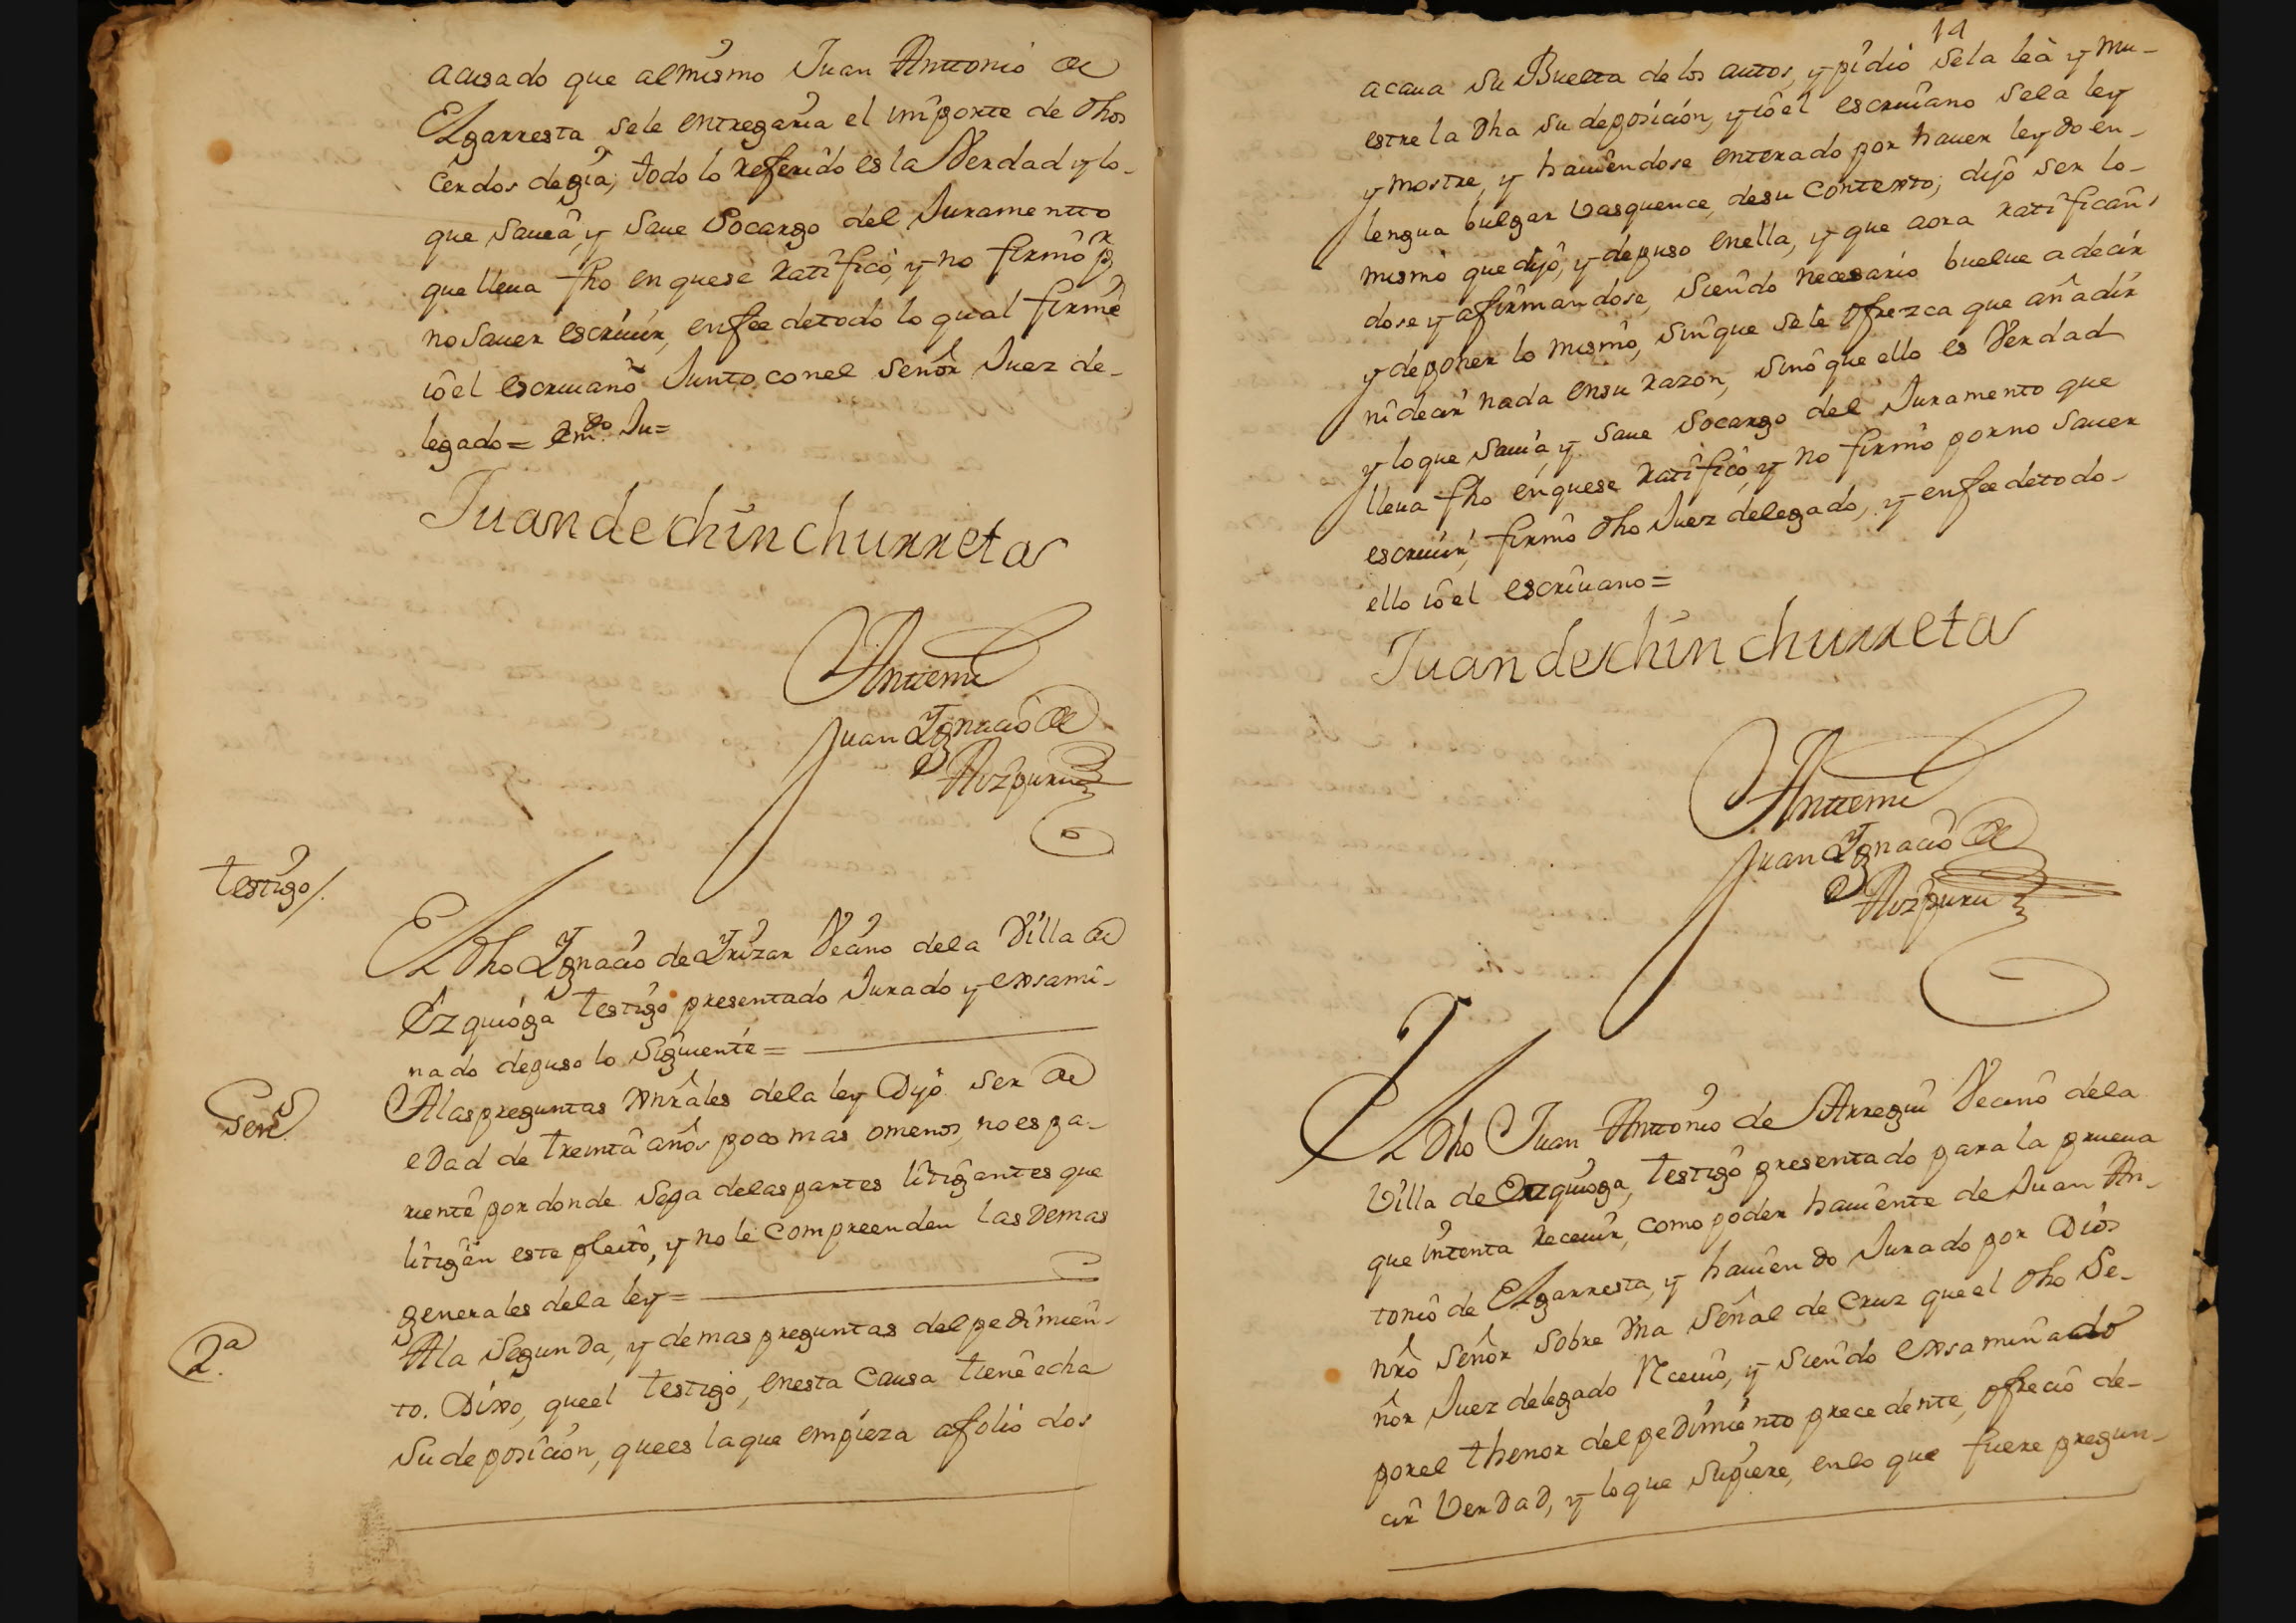 acusado que al mismo Juan Anttonio de
Elgarresta se le entregaria el importe de dhos
cerdos de gia, todo lo referido es la Verdad y lo-
que Sauea, y Saue Socargo del Juramentto
que lleua fho en que se ratificò, y no firmò pr
no Sauer escriuir, en fee de todo lo qual firmè
iò el escriuano Junto con el Señor Juez de-
legado = Emdo. Ju=
Juan de chinchurreta
Anttemi
Juan Ignacio de
Aizpuru
testigo/.
El Dho Ignacio de Irizar Vecino de la Villa de
Ezquioga testigo presentado Jurado y exsami-
nado depuso lo Siguiente=
Gens.
A las preguntas Xnrales de la ley Dijo Ser de
eDad de treinta años poco mas omenos, no es pa-
riente por donde Sepa de las partes litigantes que
litigan este pleito, y no le compreenden las Demas
generales de la ley=
2.a
A la Segunda, y demas preguntas del pedimien-
to. Dixo, que el testigo, en esta Causa tiene echa
Su deposicion, que es la que empieza a folio dos
14
acaua Su Buelta de los autos, y pidiò Se la lea y mu-
estre la Dha su deposicion, y iò el escriuano Se la ley
y mostre, y hauiendose enterado por hauer leydo en-
lengua bulgar basquence, de su Contexto; dijo Ser lo-
mismo que dijo, y depuso en ella, y que aora ratifican-
dose y afirmandose, Siendo necesario buelue a decir
y deponer lo mismo, Sin que Se le ofrezca que añadir
ni decir nada en su razon, Sino que ello es Verdad
y lo que Sauia, y Saue Socargo del Juramento que
lleua fho en que se ratificò, y no firmò por no Sauer
escriuir, firmò Dho Juez delegado, y en fee de todo-
ello iò el escriuano=
Juan de chinchurreta
Anttemi
Juan Ignacio de
Aizpuru
El Dho Juan Anttonio de Arregui Vecino de la
Villa de Ezquioga, testigo presentado para la prueua
que intenta receuir, como poder hauiente de Juan An-
tonio de Elgarresta, y hauiendo Jurado por Dios
nrò Señor Sobre Vna Señal de Cruz que el dho Se-
ñor Juez delegado Receuiò, y Siendo exsaminado
por el thenor del peDimiento precedente, ofreciò de-
cir VerDaD, y lo que Supiere, en lo que fuere pregun-